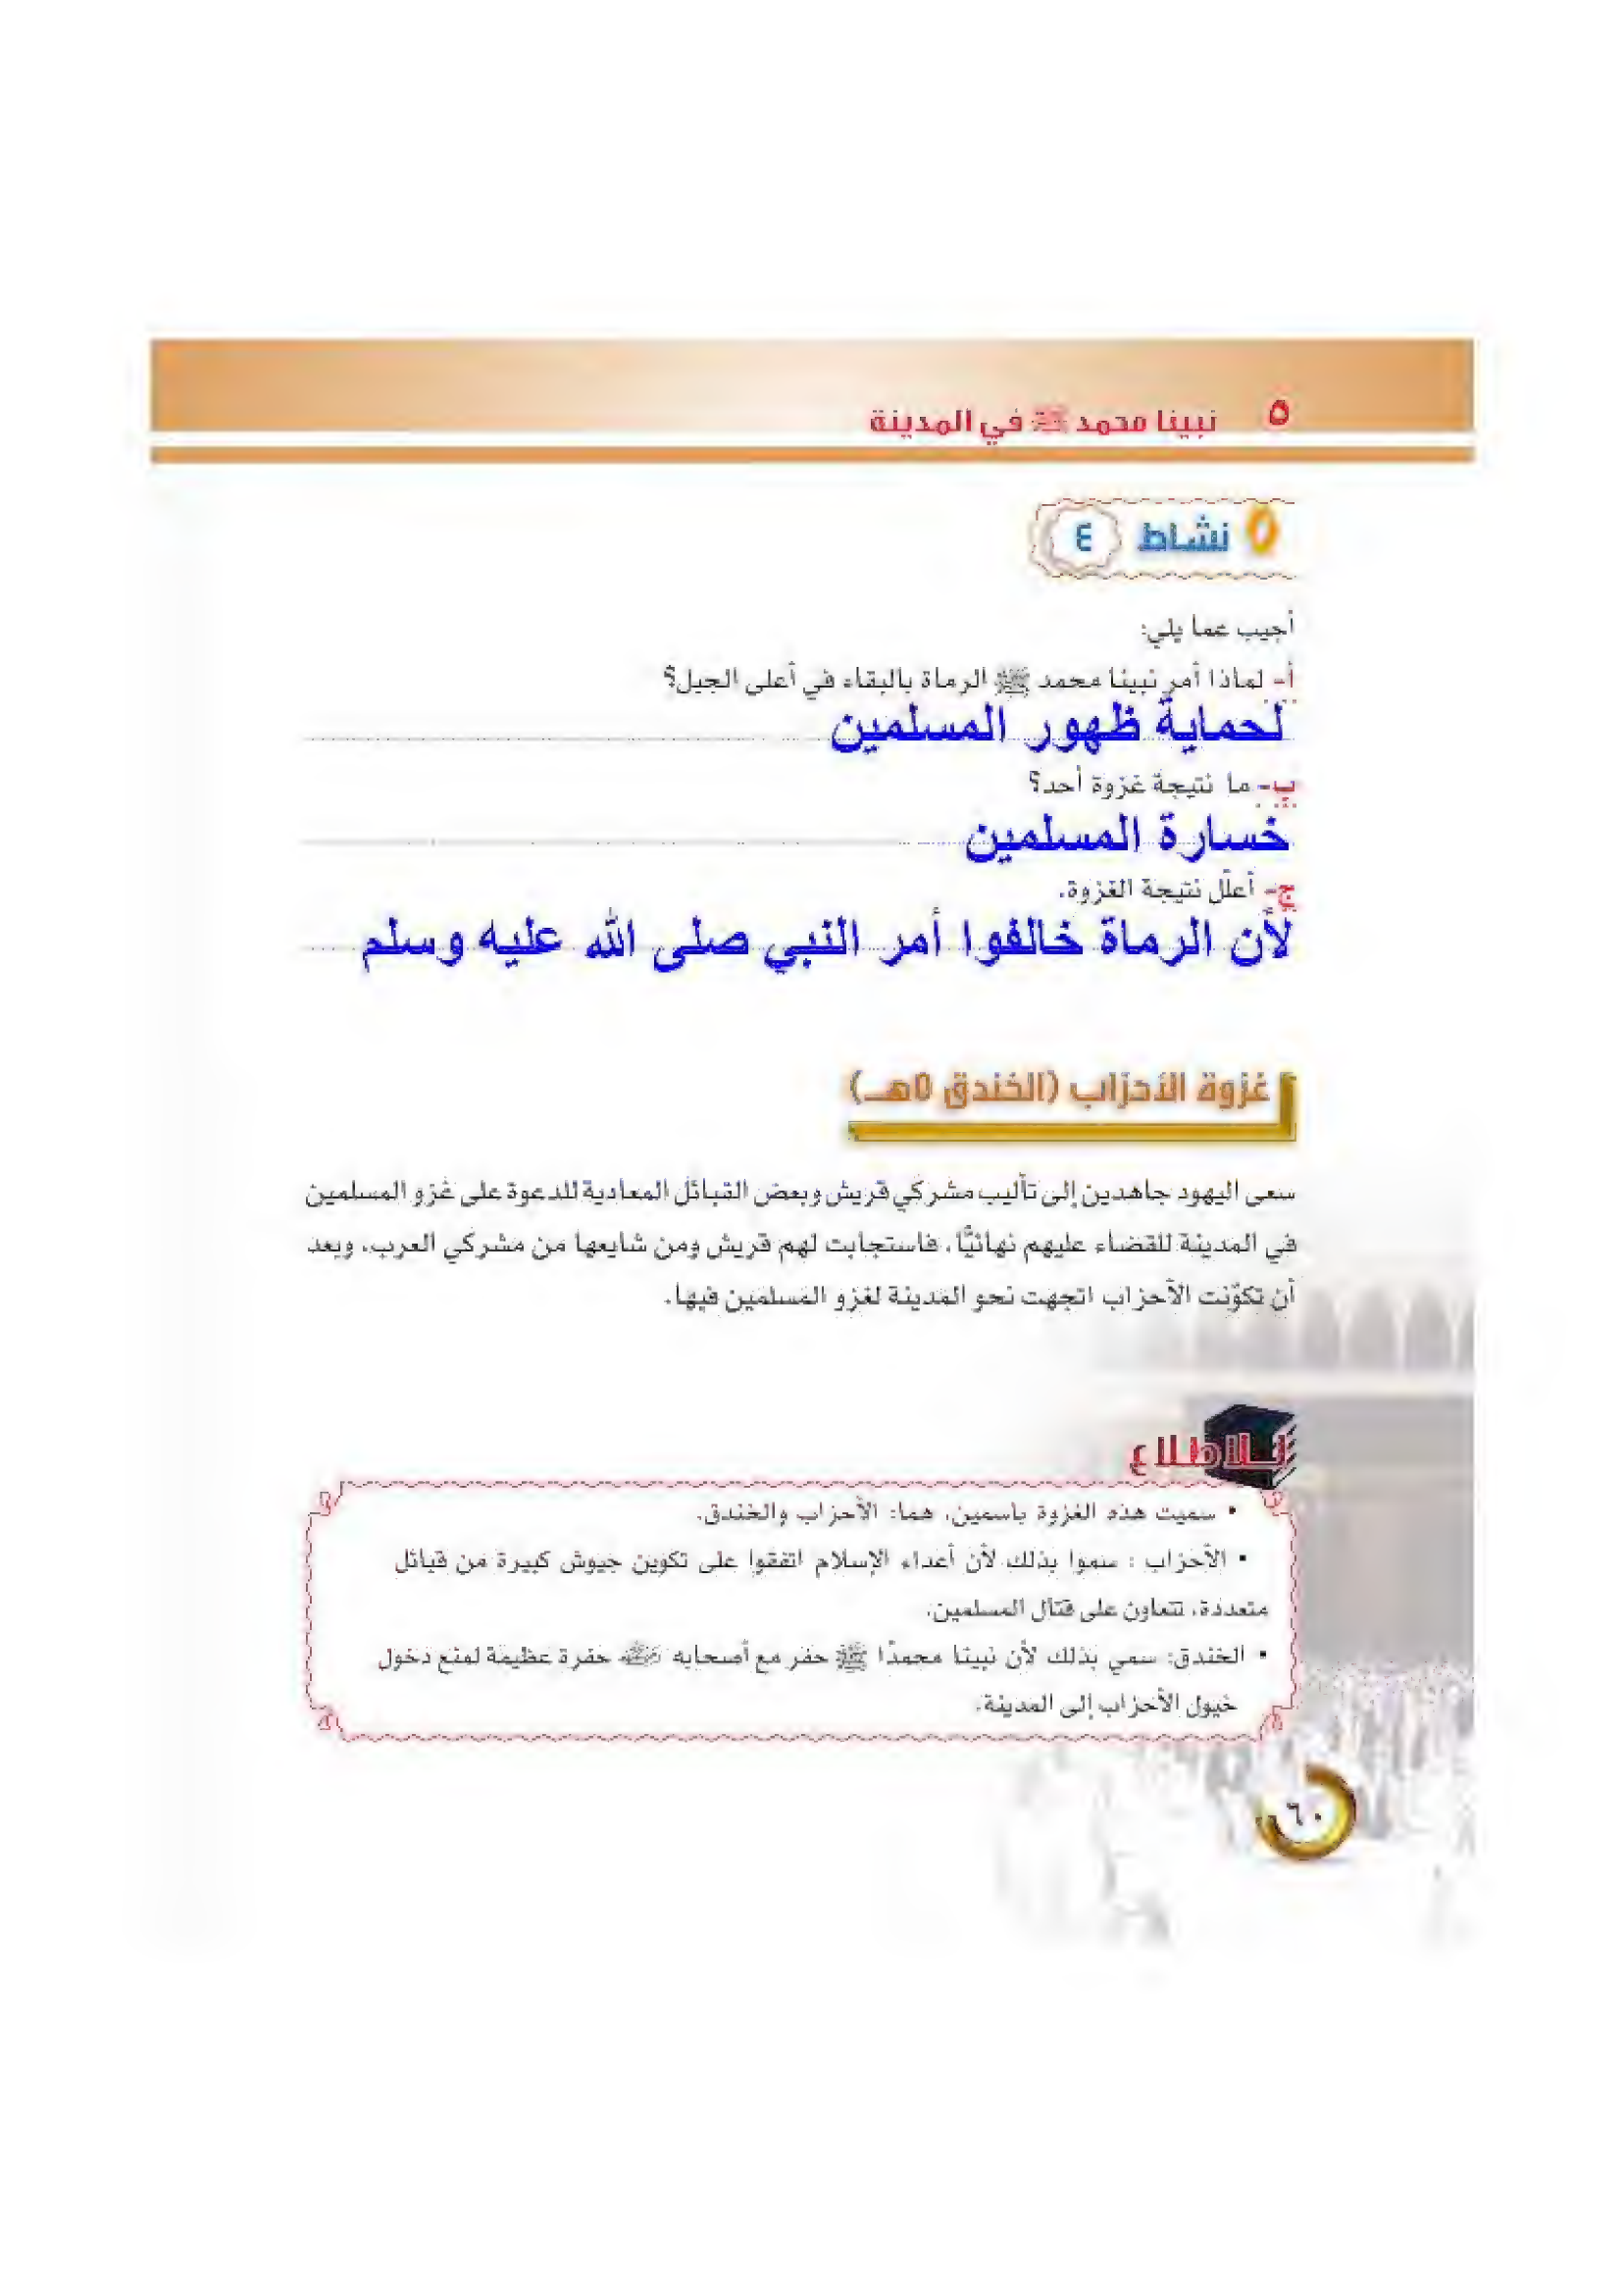 ٥ نبينا محمد ﷺ في المدينة
نشاط ٤
أجيب عما يلي:
أ- لماذا أمر نبينا محمد ﷺ الرماة بالبقاء في أعلى الجبل؟
لحماية ظهور المسلمين
ب- ما نتيجة غزوة أحد؟
خسارة المسلمين
ج- أعلّل نتيجة الغزوة.
لأن الرماة خالفوا أمر النبي صلى الله عليه وسلم
غزوة الأحزاب (الخندق ٥هـ)
سعى اليهود جاهدين إلى تأليب مشركي قريش وبعض القبائل المعادية للدعوة على غزو المسلمين
في المدينة للقضاء عليهم نهائيًّا، فاستجابت لهم قريش ومن شايعها من مشركي العرب، وبعد
أن تكوّنت الأحزاب اتجهت نحو المدينة لغزو المسلمين فيها.
للاطلاع
• سميت هذه الغزوة باسمين، هما: الأحزاب والخندق.
• الأحزاب : سموا بذلك لأن أعداء الإسلام اتفقوا على تكوين جيوش كبيرة من قبائل
متعددة، تتعاون على قتال المسلمين.
• الخندق: سمي بذلك لأن نبينا محمدًا ﷺ حفر مع أصحابه حفرة عظيمة لمنع دخول
خيول الأحزاب إلى المدينة.
٦٠